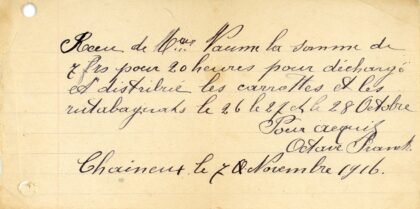 Recu de Mme Vaume la somme de
7 frs pour 20 heures pour déchargé
et distribue les carrottes et les
rutabagnats le 26 le 27 et le 28 Octobre
Pour acquit
Octave Franck
Chaineux, le 7 Novembre 1916.